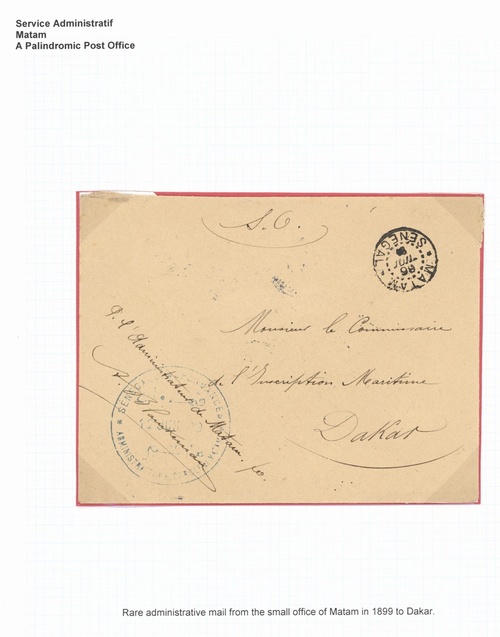 Service Administratif
Matam
A Palindromic Post Office
MATAM
SENEGAL
Monsieur le Commissaire
de l'Inscription Maritime
Dakar
P. l'Administrateur de Matam, p.o.
SENEGAL
ADMINISTRA
Rare administrative mail from the small office of Matam in 1899 to Dakar.